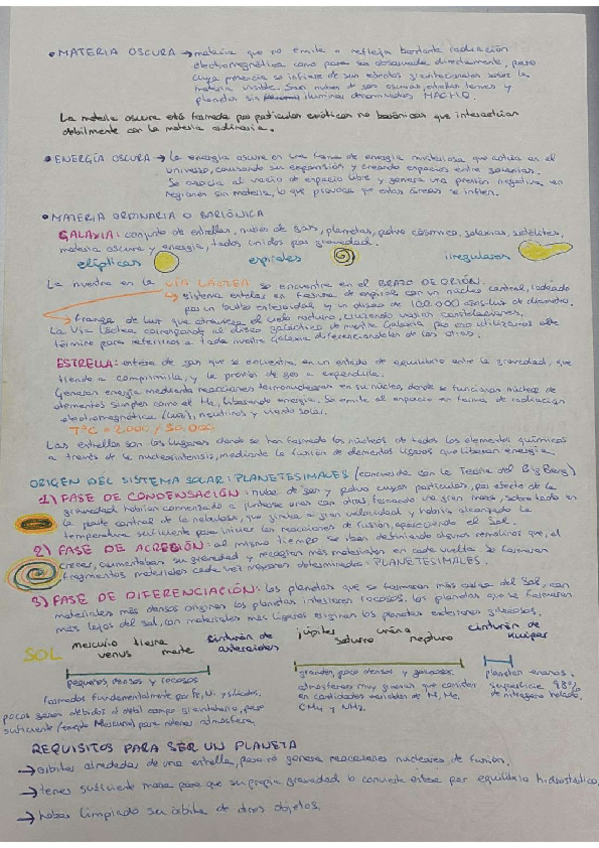 • MATERIA OSCURA → materia que no emite o refleja bastante radiación
electromagnética como para ser observada directamente, pero
cuya presencia se infiere de sus efectos gravitacionales sobre la
materia visible. Son nubes de gas oscuras, estrellas tenues y
planetas sin iluminar denominados MACHO.
La materia oscura está formada por partículas exóticas no bariónicas que interactúan
débilmente con la materia ordinaria.
• ENERGÍA OSCURA → La energía oscura es una forma de energía misteriosa que actúa en el
universo, causando su expansión y creando espacios entre galaxias.
Se asocia al vacío de espacio libre y genera una presión negativa en
regiones sin materia, lo que provoca que estas áreas se inflen.
• MATERIA ORDINARIA O BARIÓNICA
GALAXIA: conjunto de estrellas, nubes de gas, planetas, polvo cósmico, galaxias, satélites,
materia oscura y energía, todos unidos por gravedad.
elípticas espirales irregulares
La nuestra es la VÍA LÁCTEA se encuentra en el BRAZO DE ORIÓN.
→ sistema estelar en forma de espiral con un núcleo central, rodeado
por un bulbo esferoidal y un disco de 100.000 años-luz de diámetro.
→ franja de luz que atraviesa el cielo nocturno, cruzando varias constelaciones.
La Vía Láctea corresponde al disco galáctico de nuestra Galaxia por eso utilizamos este
término para referirnos a toda nuestra Galaxia diferenciándola de las otras.
ESTRELLA: esfera de gas que se encuentra en un estado de equilibrio entre la gravedad, que
tiende a comprimirla, y la presión de gas a expandirla.
Generan energía mediante reacciones termonucleares en su núcleo, donde se fusionan núcleos de
elementos simples como el He, liberando energía. Se emite al espacio en forma de radiación
electromagnética (luz), neutrinos y viento solar.
TªC = 2.000 / 50.000
Las estrellas son los lugares donde se han formado los núcleos de todos los elementos químicos
a través de la nucleosíntesis, mediante la fusión de elementos ligeros que liberan energía.
ORIGEN DEL SISTEMA SOLAR: PLANETESIMALES (concuerda con la Teoría del Big Bang)
1) FASE DE CONDENSACIÓN: nube de gas y polvo cuyas partículas, por efecto de la
gravedad habrían comenzado a juntarse unas con otras formando una gran masa, sobre todo en
la parte central de la nebulosa, que giraba a gran velocidad y habría alcanzado la
temperatura suficiente para iniciar las reacciones de fusión, apareciendo el Sol.
2) FASE DE ACRECIÓN: al mismo tiempo se iban definiendo algunos remolinos que, al
crecer, aumentaban su gravedad y recogían más materiales en cada vuelta. Se formaron
fragmentos materiales cada vez mayores determinados: PLANETESIMALES.
3) FASE DE DIFERENCIACIÓN: los planetas que se formaron más cerca del Sol, con
materiales más densos originan los planetas interiores rocosos. Los planetas que se formaron
más lejos del sol, con materiales más ligeros originan los planetas exteriores gaseosos.
SOL mercurio venus tierra marte cinturón de asteroides júpiter saturno urano neptuno cinturón de kuiper
pequeños, densos y rocosos
formados fundamentalmente por Fe, Ni y silicatos,
pocos gases debidos al débil campo gravitatorio, pero
suficiente (excepto Mercurio) para retener atmósfera.
grandes, poco densos y gaseosos.
atmósferas muy gruesas que consisten
en cantidades variables de H, He,
CH4 y NH3.
planetas enanos.
superficie 98%
de nitrógeno helado.
REQUISITOS PARA SER UN PLANETA
→ orbitar alrededor de una estrella, pero no genera reacciones nucleares de fusión.
→ tener suficiente masa para que su propia gravedad lo convierta esfera por equilibrio hidrostático.
→ haber limpiado su órbita de otros objetos.